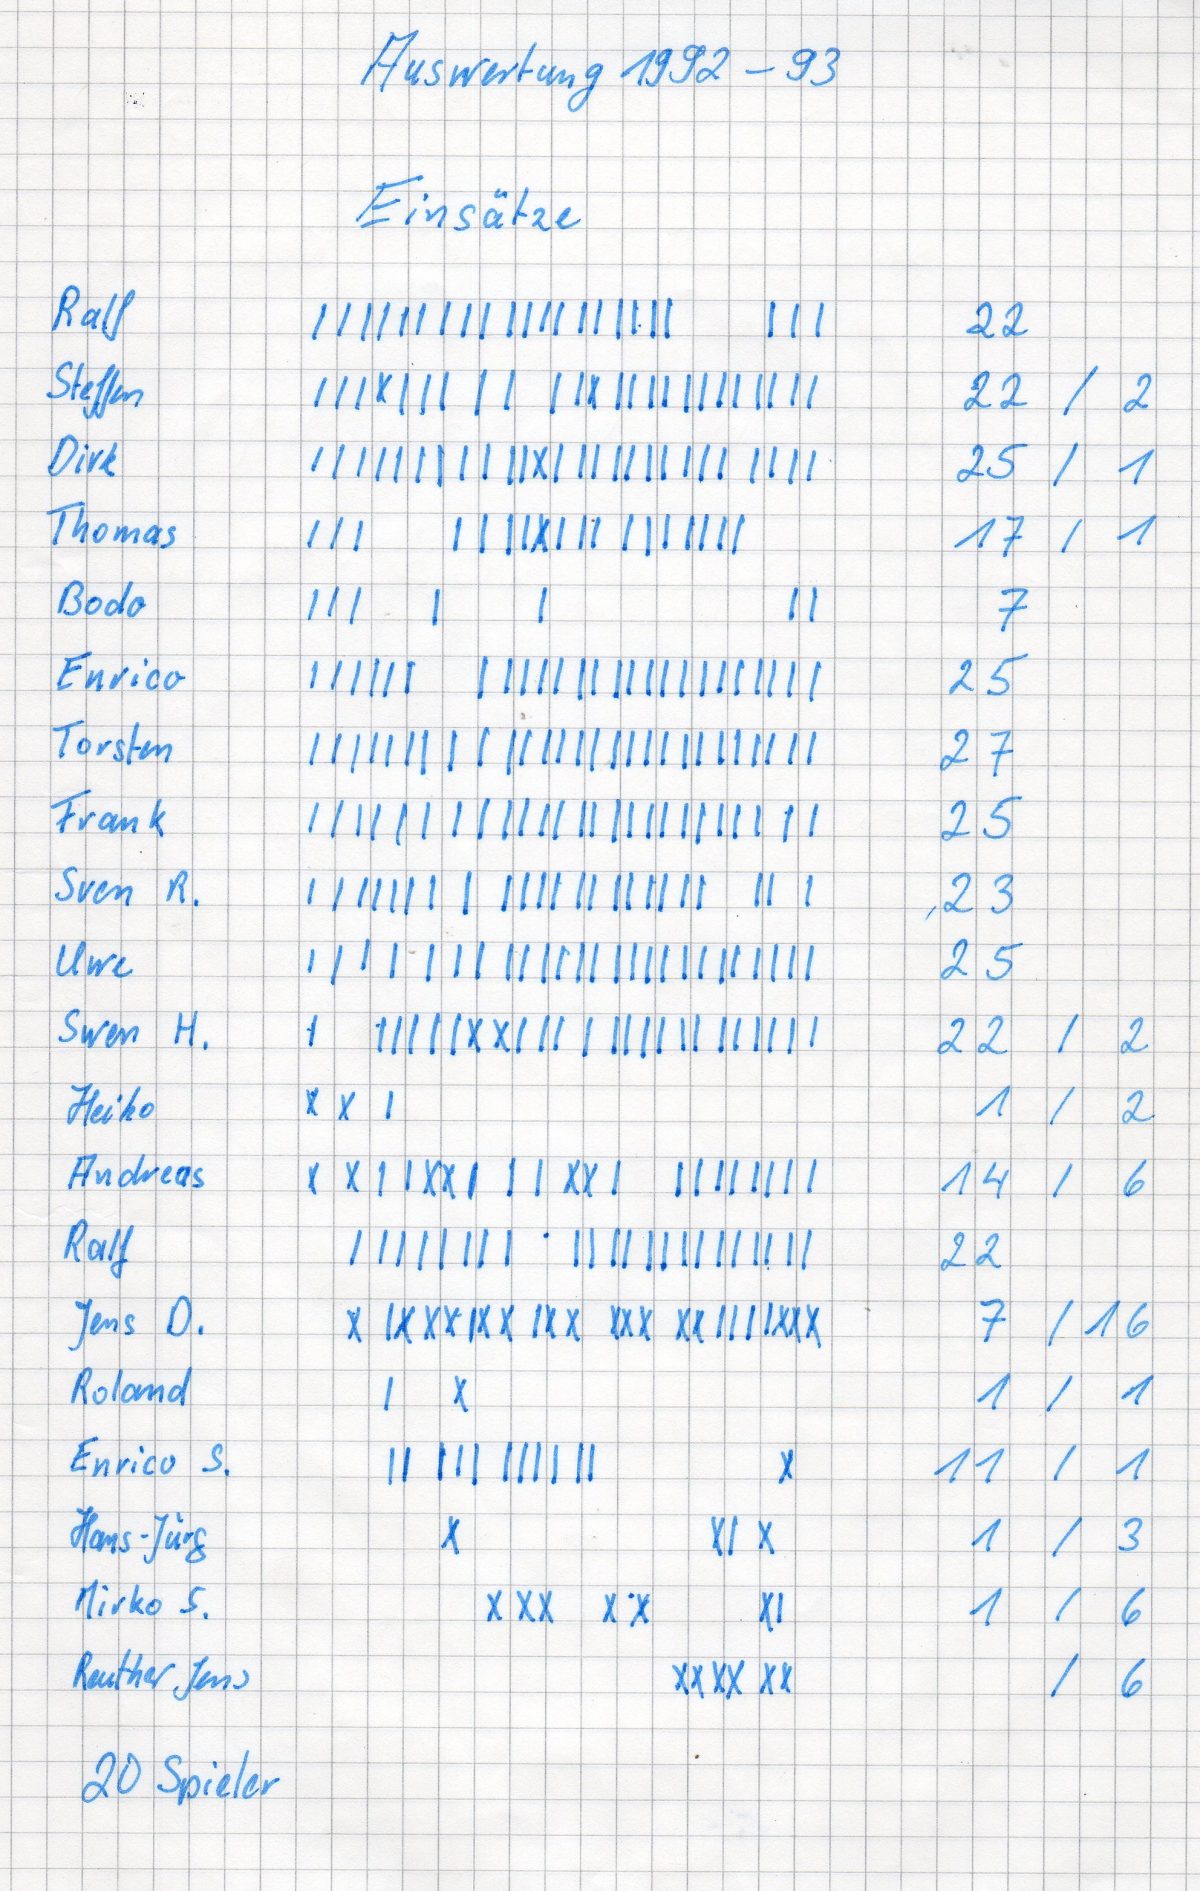 Auswertung 1992 - 93
Einsätze
Ralf 22
Steffen 22 / 2
Dirk 25 / 1
Thomas 17 / 1
Bodo 7
Enrico 25
Torsten 27
Frank 25
Sven R. 23
Uwe 25
Swen H. 22 / 2
Heiko 1 / 2
Andreas 14 / 6
Ralf 22
Jens D. 7 / 16
Roland 1 / 1
Enrico S. 11 / 1
Hans-Jürg 1 / 3
Mirko S. 1 / 6
Reuther Jens / 6
20 Spieler